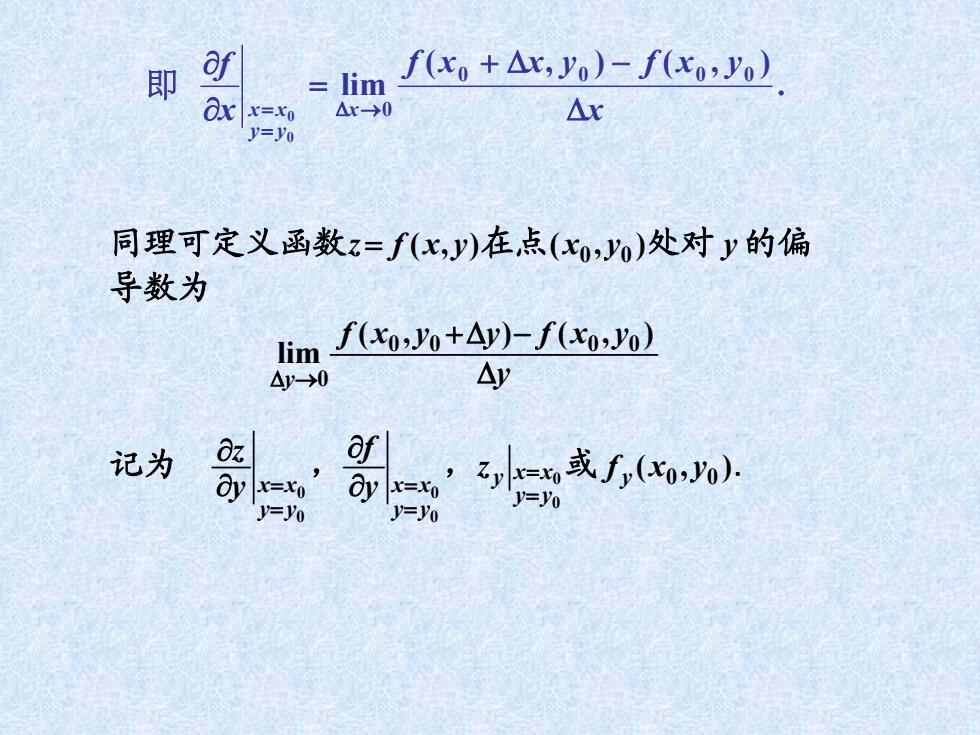 即 $\left.\frac{\partial f}{\partial x}\right|_{\substack{x=x_0\\y=y_0}} = \lim_{\Delta x\to 0}\frac{f(x_0+\Delta x,y_0)-f(x_0,y_0)}{\Delta x}.$
同理可定义函数$z=f(x,y)$在点$(x_0,y_0)$处对 $y$ 的偏
导数为
$\lim_{\Delta y\to 0}\frac{f(x_0,y_0+\Delta y)-f(x_0,y_0)}{\Delta y}$
记为 $\left.\frac{\partial z}{\partial y}\right|_{\substack{x=x_0\\y=y_0}}$，$\left.\frac{\partial f}{\partial y}\right|_{\substack{x=x_0\\y=y_0}}$，$z_y\big|_{\substack{x=x_0\\y=y_0}}$或 $f_y(x_0,y_0).$